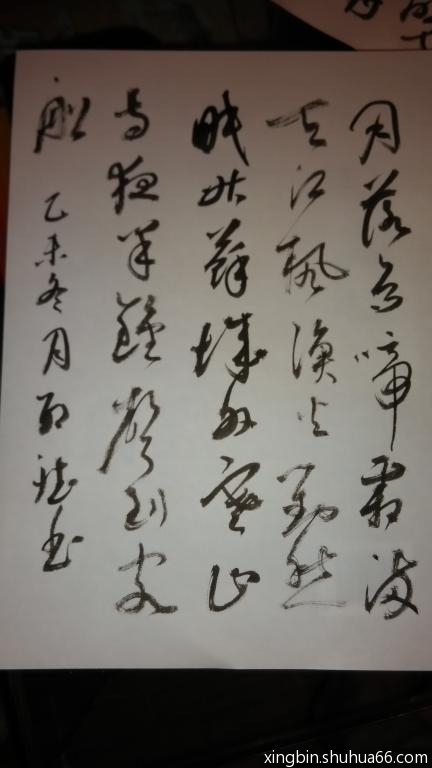 月落烏啼霜滿
天江楓漁火對愁
眠姑蘇城外寒山
寺夜半鐘聲到客
船
乙未冬月書
xingbin.shuhua66.com